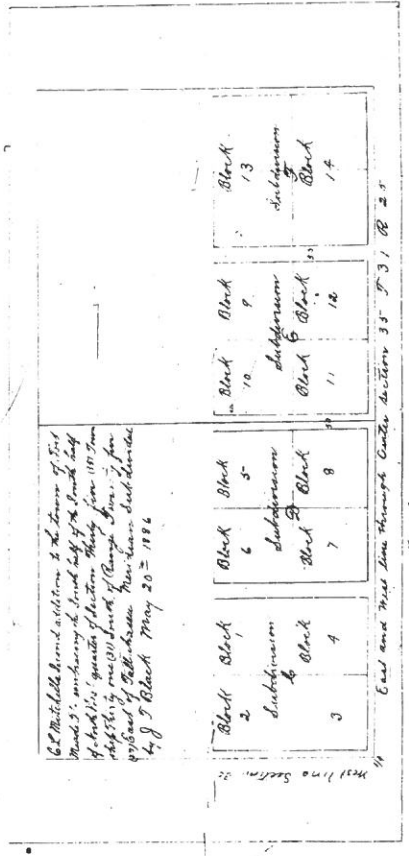 C L Mitchells second addition to the town of Fort
Meade Fl. embracing the South half of the South half
of North West quarter of Section Thirty five (35) Town
ship Thirty one (31) South of Range
East of Tallahassee Meridian Subdivided
by J T Black May 20th 1886
Block 2
Block 1
Subdivision
3
Block 4
Block 6
Block 5
Subdivision D
Block 7
Block 8
Block 10
Block 9
Subdivision
Block 11
Block 12
Block 13
Subdivision
Block 14
West line Section 35
East and West line through Center Section 35 T 31 R 25